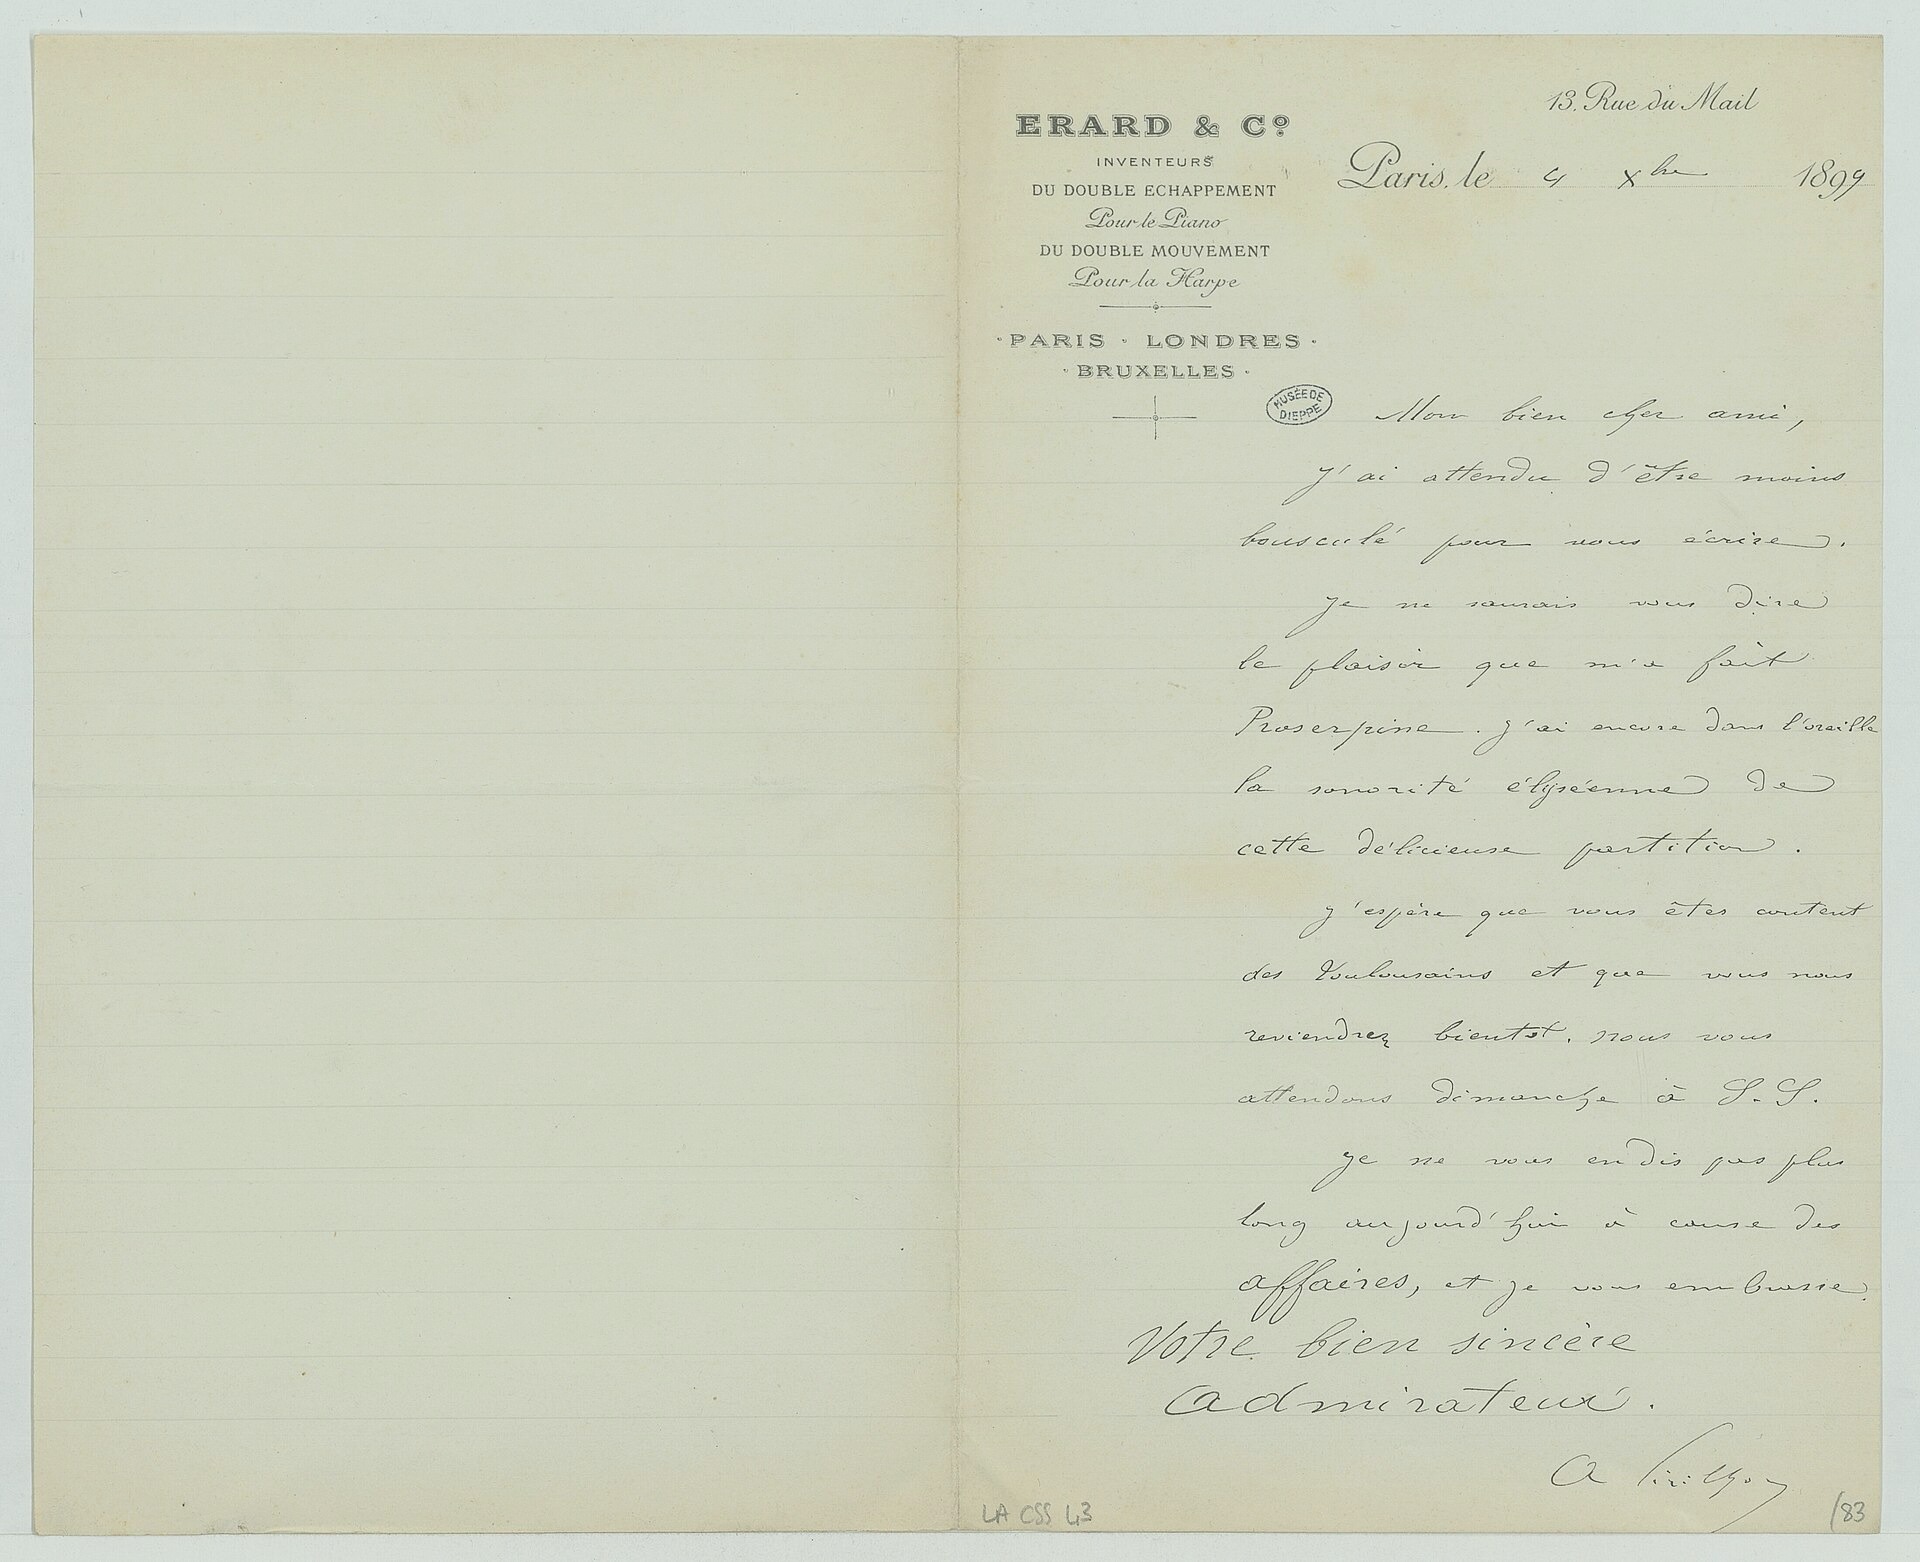 13. Rue du Mail
ERARD & Cº
INVENTEURS
DU DOUBLE ECHAPPEMENT
Pour le Piano
DU DOUBLE MOUVEMENT
Pour la Harpe
PARIS · LONDRES ·
· BRUXELLES ·
Paris, le 4 Xbre 1899
MUSÉE DE
DIEPPE
Mon bien cher ami,
J'ai attendu d'être moins
bousculé pour vous écrire.
Je ne saurais vous dire
le plaisir que m'a fait
Proserpine. J'ai encore dans l'oreille
la sonorité élyséenne de
cette délicieuse partition.
J'espère que vous êtes content
des Toulousains et que vous nous
reviendrez bientôt. Nous vous
attendons dimanche à S.S.
Je ne vous en dis pas plus
long aujourd'hui à cause des
affaires, et je vous embrasse.
Votre bien sincère
admirateur.
A
LA CSS 43
/83